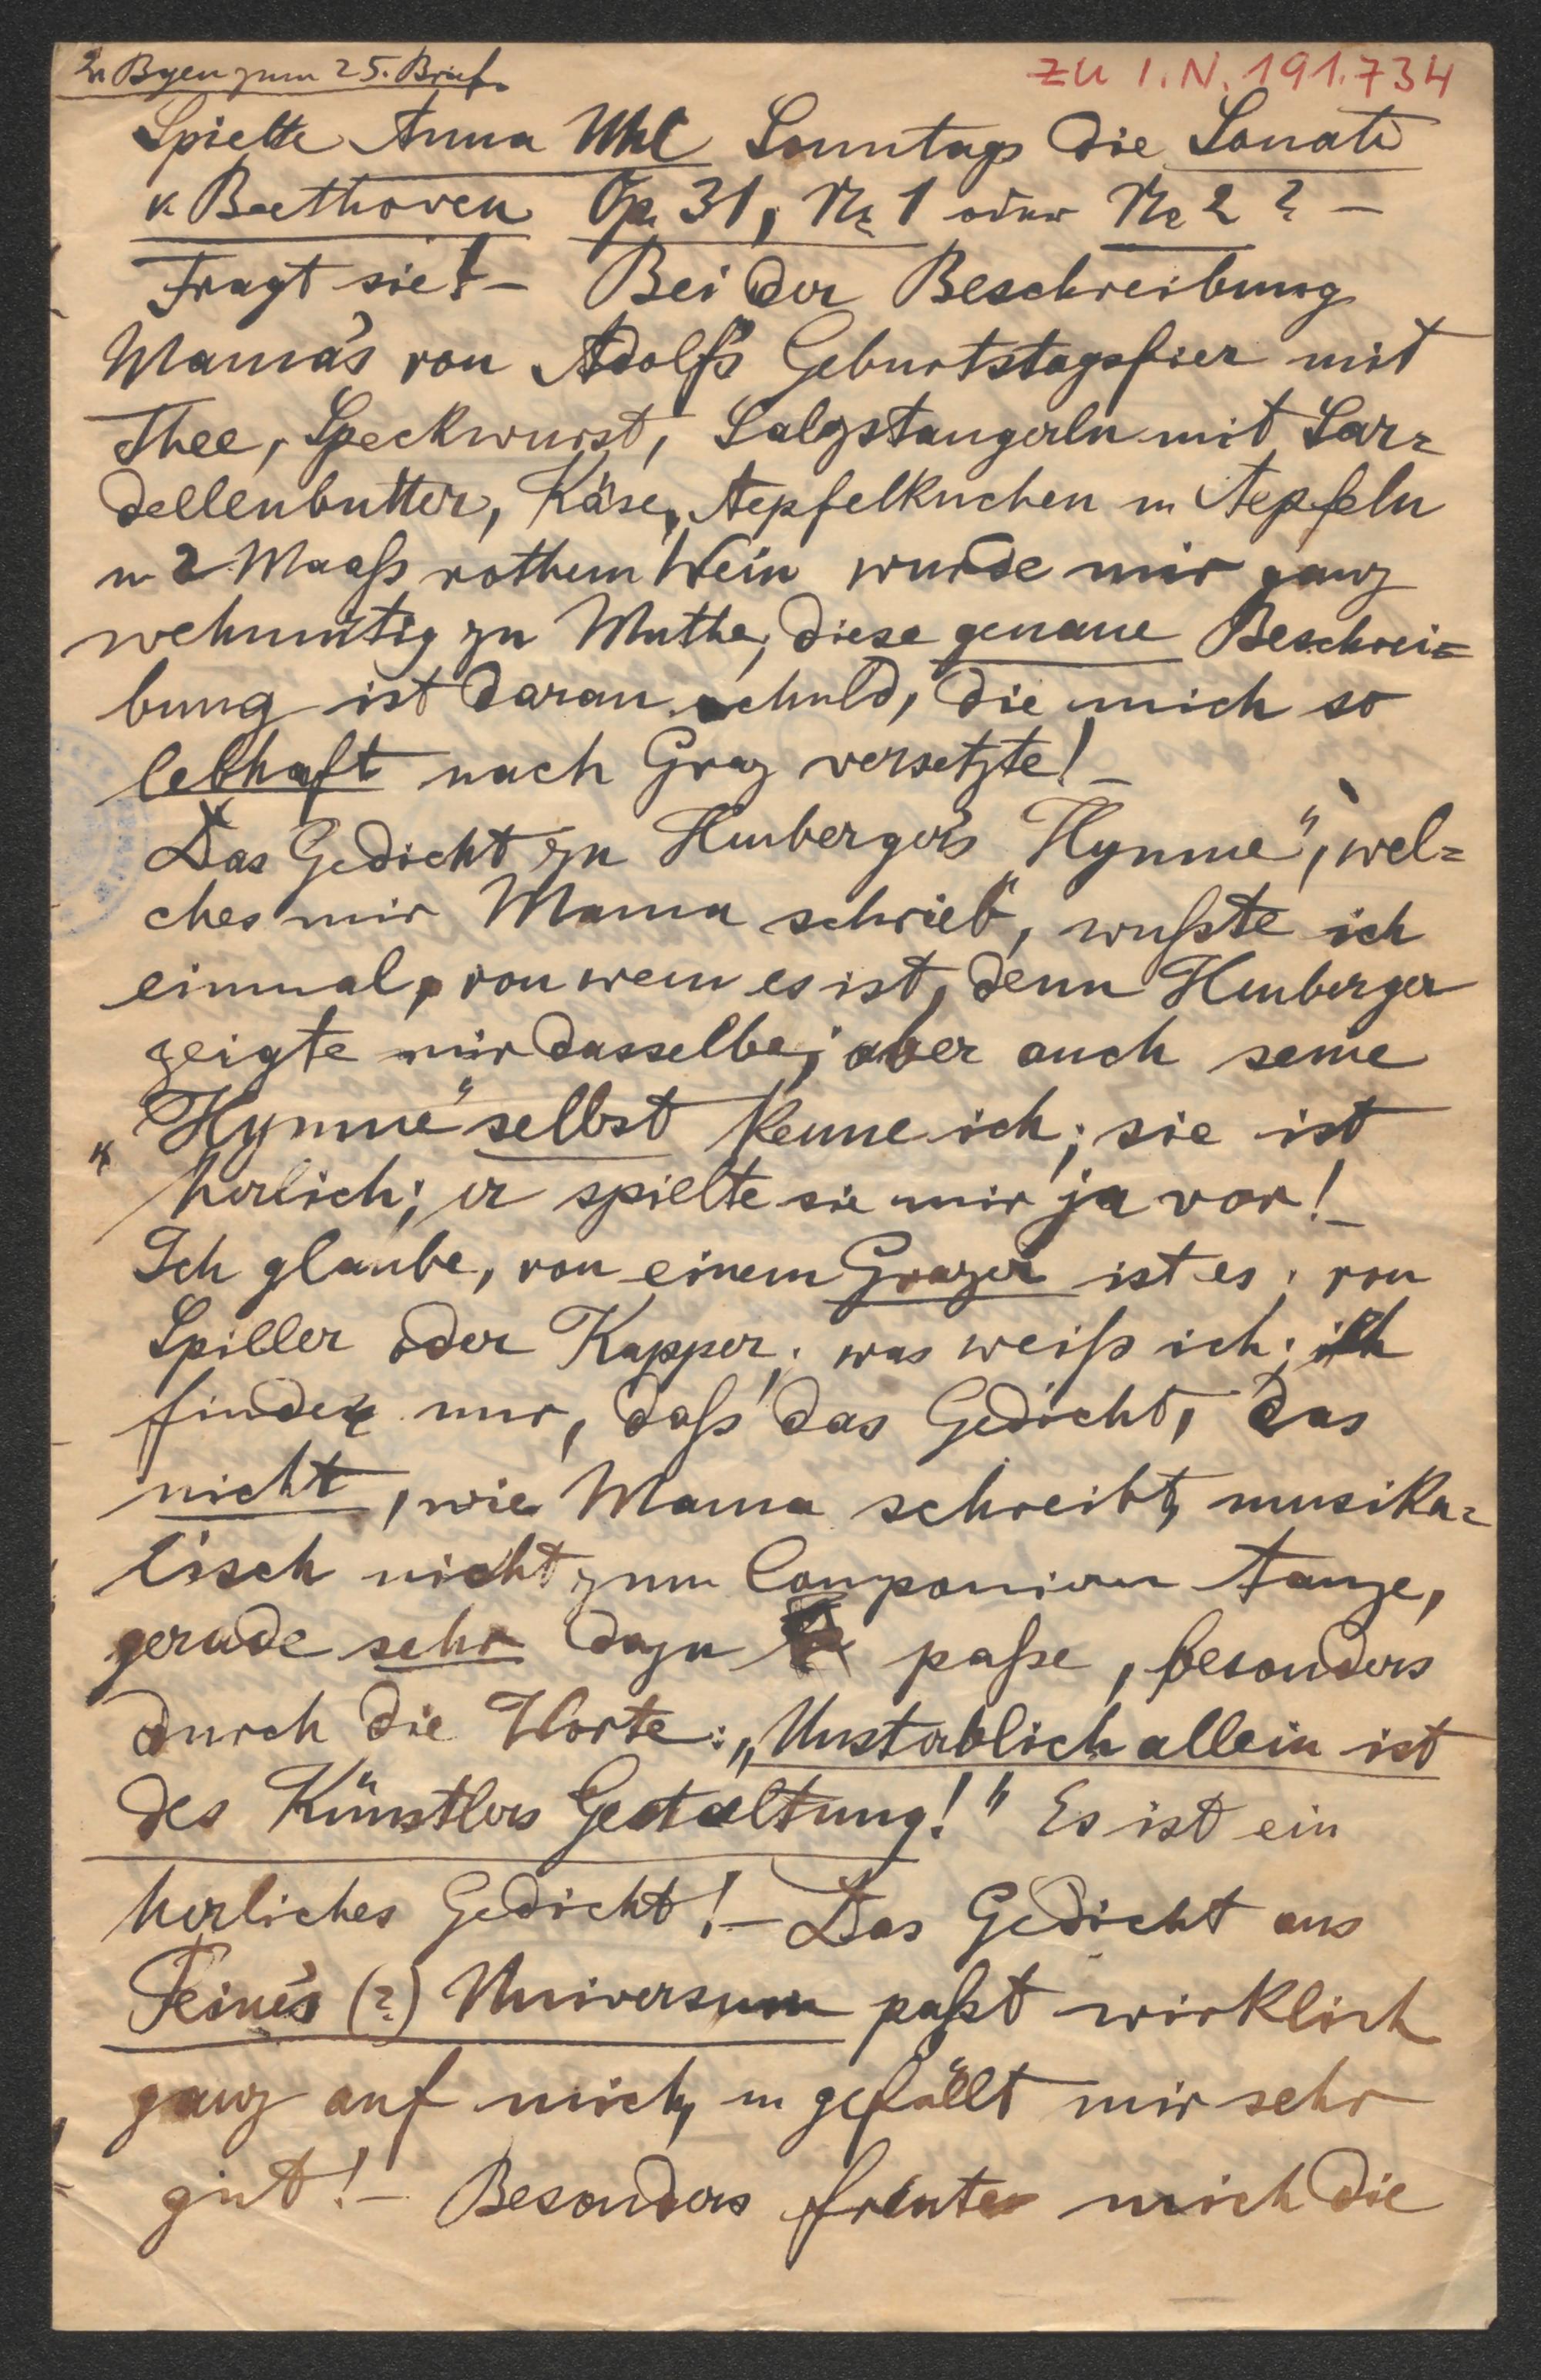 2. Bgen zum 25. Brief.
ZU I.N. 191.734
Spielte Anna Uhl Sonntags die Sonate
v. Beethoven Op. 31, Nr. 1 oder Nr. 2 ? –
Fragt sie! – Bei der Beschreibung
Mama's von Adolf's Geburtstagsfier mit
Thee, Speckwurst, Salzstangerln mit Sar=
dellenbutter, Käse, Aepfelkuchen u Aepfeln
u 2 Maaß rothem Wein wurde mir ganz
wehmütig zu Muthe, diese genaue Beschrei=
bung ist daran schuld, die mich so
lebhaft nach Graz versetzte! –
Das Gedicht zu Hmberger's „Hymne", wel=
ches mir Mama schrieb, wußte ich
einmal, von wem es ist, denn Hmberger
zeigte mir dasselbe; aber auch seine
„Hymne" selbst kenne ich; sie ist
herlich; er spielte sie mir ja vor! –
Ich glaube, von einem Grazer ist es; von
Spiller oder Kapper; was weiß ich; ich
finde nur, daß das Gedicht, das
nicht, wie Mama schreibt, musika=
lisch nicht zum Componiren tauge,
gerade sehr dazu paße, besonders
durch die Worte: „Unsterblich allein ist
des Künstlers Gestaltung!" Es ist ein
herliches Gedicht! – Das Gedicht aus
Feine's (?) Universum paßt wirklich
ganz auf mich, u gefällt mir sehr
gut! – Besonders freute mich die